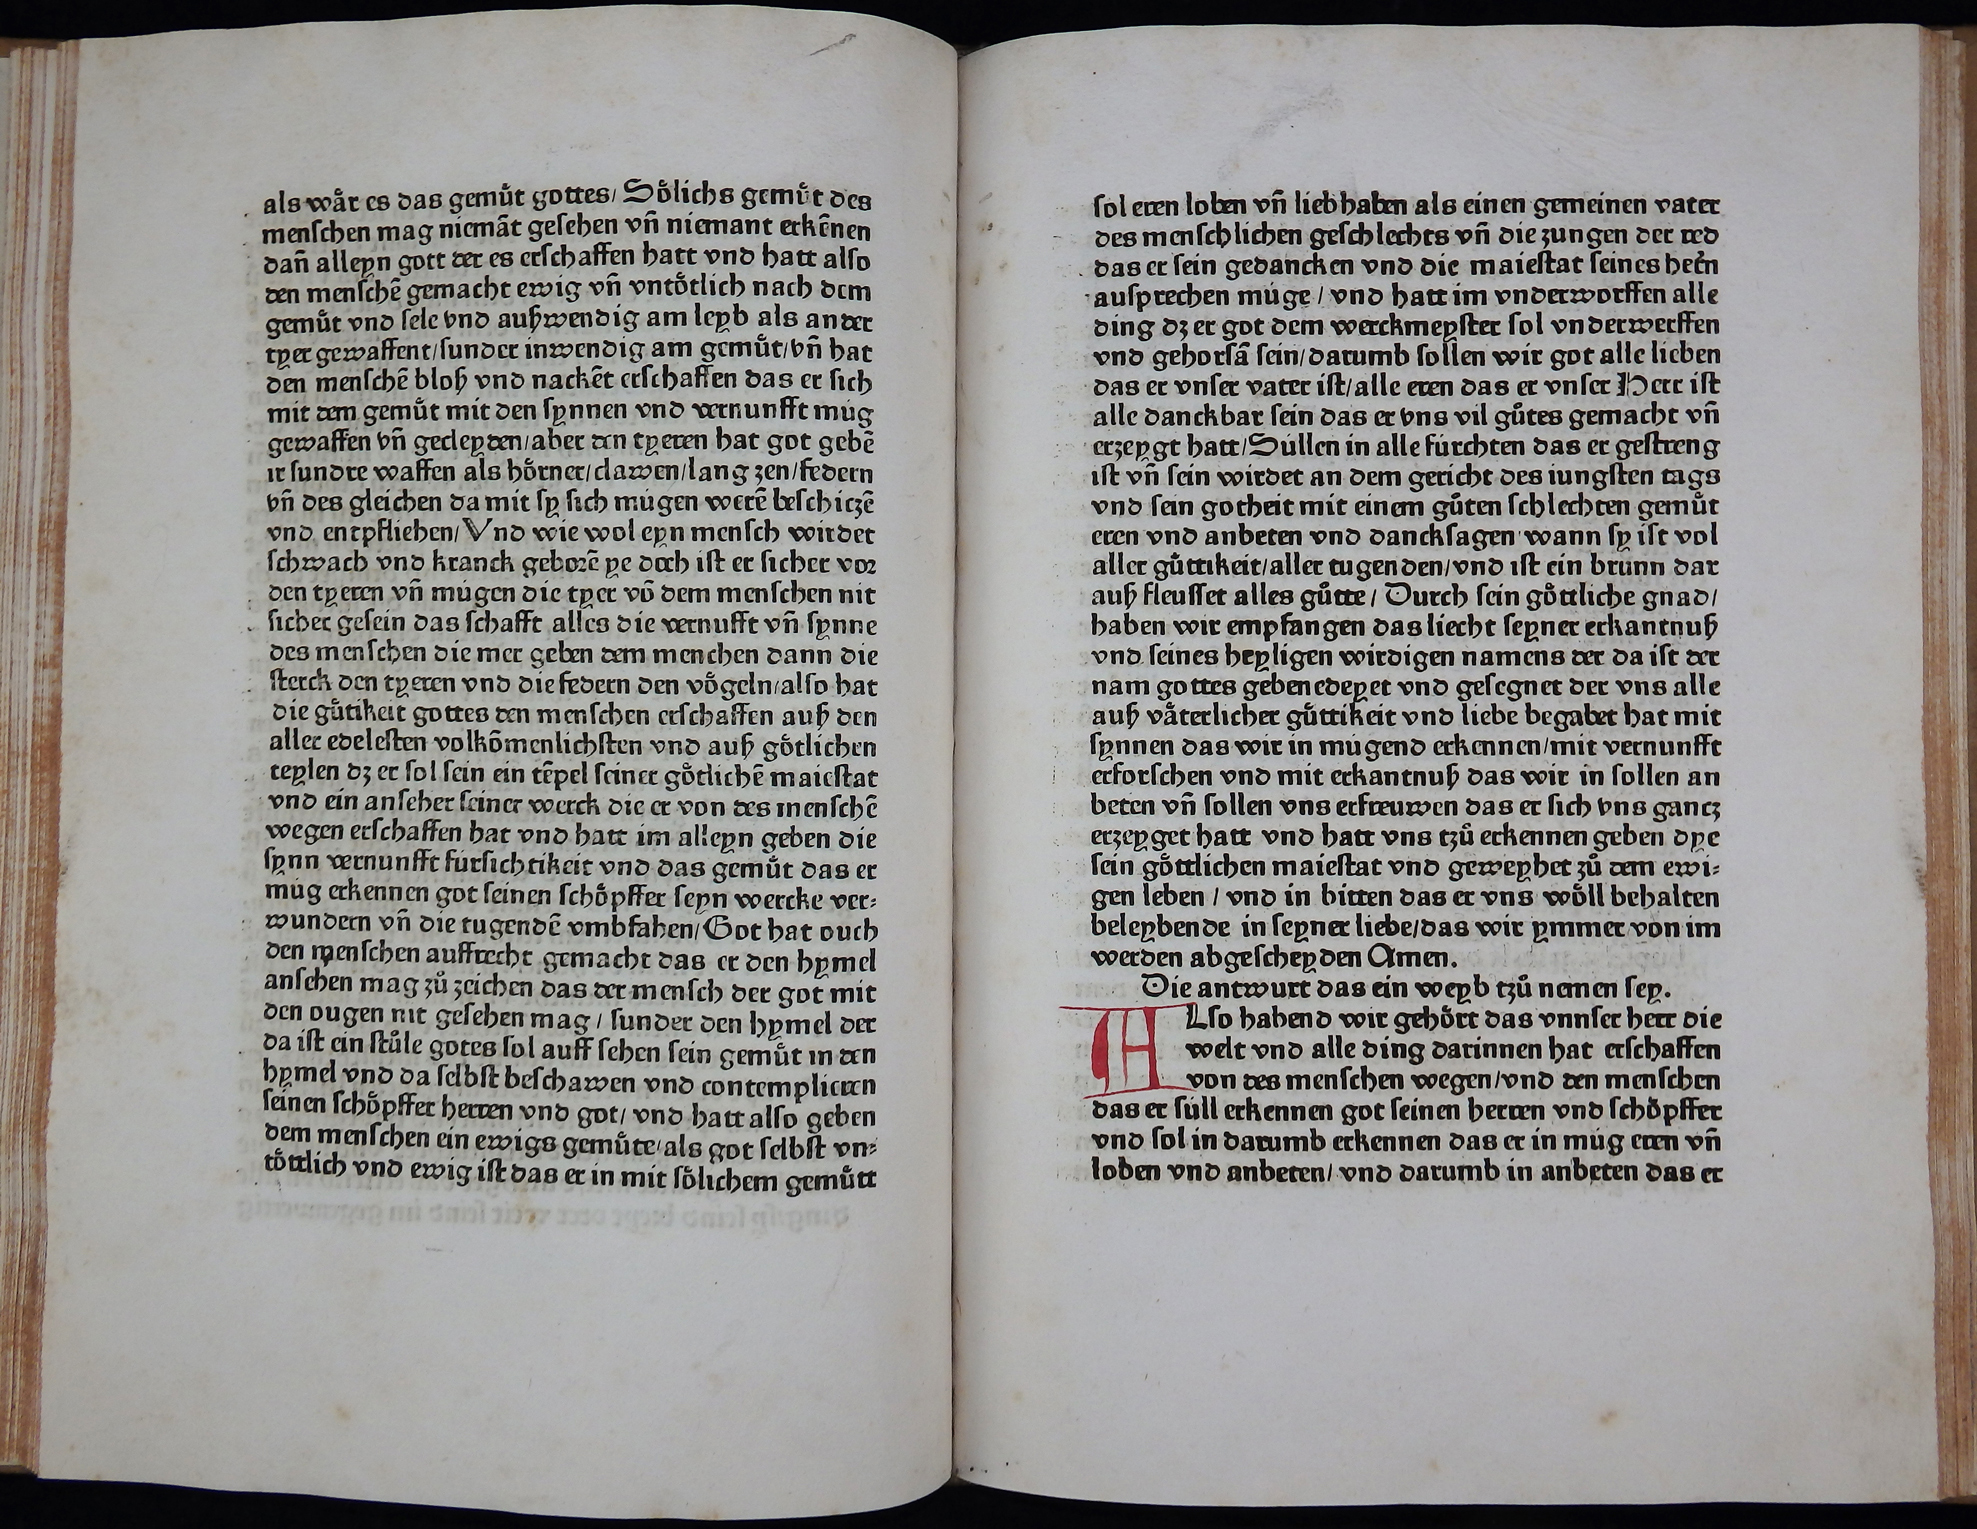 als wåͤr es das gemuͤt gottes/ Soͤlichs gemuͤt des
menſchen mag niemãt geſehen vñ niemant erkẽnen
dañ alleyn gott der es erſchaffen hatt vnd hatt alſo
den menſchẽ gemacht ewig vñ vntoͤtlich nach dem
gemuͤt vnd ſele vnd außwendig am leyb als ander
tyer gewaffent/ſunder inwendig am gemuͤt/vñ hat
den menſchẽ bloß vnd nackẽt erſchaffen das er ſich
mit dem gemuͤt mit den ſynnen vnd vernunfft mug
gewaffen vñ gecleyden/aber den tyeren hat got gebẽ
ir ſundre waffen als hoͤrner/clawen/lang zen/federn
vñ des gleichen da mit ſy ſich mugen werẽ beſchiczẽ
vnd entpfliehen/Vnd wie wol eyn menſch wirdet
ſchwach vnd kranck geborẽ ye doch iſt er ſicher vor
den tyeren vñ mugen die tyer võ dem menſchen nit
ſicher geſein das ſchafft alles die vernufft vñ ſynne
des menſchen die mer geben dem menchen dann die
ſterck den tyeren vnd die federn den voͤgeln/alſo hat
die guͤtikeit gottes den menſchen erſchaffen auß den
aller edeleſten volkõmenlichſten vnd auß goͤtlichen
teylen dz er ſol ſein ein tẽpel ſeiner goͤtlichẽ maieſtat
vnd ein anſeher ſeiner werck die er von des menſchẽ
wegen erſchaffen hat vnd hatt im alleyn geben die
ſynn vernunfft furſichtikeit vnd das gemuͤt das er
mug erkennen got ſeinen ſchoͤpffer ſeyn wercke ver⸗
wundern vñ die tugendẽ vmbfahen/Got hat ouch
den menſchen auffrecht gemacht das er den hymel
anſehen mag zuͦ zeichen das der menſch der got mit
den ougen nit geſehen mag/ ſunder den hymel der
da iſt ein ſtuͦle gotes ſol auff ſehen ſein gemuͤt in den
hymel vnd da ſelbſt beſchawen vnd contemplieren
ſeinen ſchoͤpffer herren vnd got/ vnd hatt alſo geben
dem menſchen ein ewigs gemuͤte/als got ſelbſt vn⸗
toͤttlich vnd ewig iſt das er in mit ſoͤlichem gemuͤtt
ſol eren loben vñ lieb haben als einen gemeinen vater
des menſchlichen geſchlechts vñ die zungen der red
das er ſein gedancken vnd die maieſtat ſeines herñ
auſprechen muge/ vnd hatt im vnderworffen alle
ding dz er got dem werckmeyſter ſol vnderwerffen
vnd gehorſã ſein/darumb ſollen wir got alle lieben
das er vnſer vater iſt/alle eren das er vnſer Herr iſt
alle danckbar ſein das er vns vil guͦtes gemacht vñ
erzeygt hatt/Sullen in alle furchten das er geſtreng
iſt vñ ſein wirdet an dem gericht des iungſten tags
vnd ſein gotheit mit einem guͦten ſchlechten gemuͤt
eren vnd anbeten vnd danckſagen wann ſy iſt vol
aller guͤttikeit/aller tugenden/vnd iſt ein brunn dar
auß fleuſſet alles guͦtte/ Durch ſein goͤttliche gnad/
haben wir empfangen das liecht ſeyner erkantnuß
vnd ſeines heyligen wirdigen namens der da iſt der
nam gottes gebenedeyet vnd geſegnet der vns alle
auß vaͤterlicher guͤttikeit vnd liebe begabet hat mit
ſynnen das wir in mugend erkennen/mit vernunfft
erforſchen vnd mit erkantnuß das wir in ſollen an
beten vñ ſollen vns erfreuwen das er ſich vns gantz
erzeyget hatt vnd hatt vns tzuͦ erkennen geben dye
ſein goͤttlichen maieſtat vnd geweyhet zuͦ dem ewi⸗
gen leben/ vnd in bitten das er vns woͤll behalten
beleybende in ſeyner liebe/das wir ymmer von im
werden abgeſcheyden Amen.
Die antwurt das ein weyb tzuͦ nemen ſey.
ALſo habend wir gehoͤrt das vnnſer herr die
welt vnd alle ding darinnen hat erſchaffen
von des menſchen wegen/vnd den menſchen
das er ſull erkennen got ſeinen herren vnd ſchoͤpffer
vnd ſol in darumb erkennen das er in mug eren vñ
loben vnd anbeten/ vnd darumb in anbeten das er